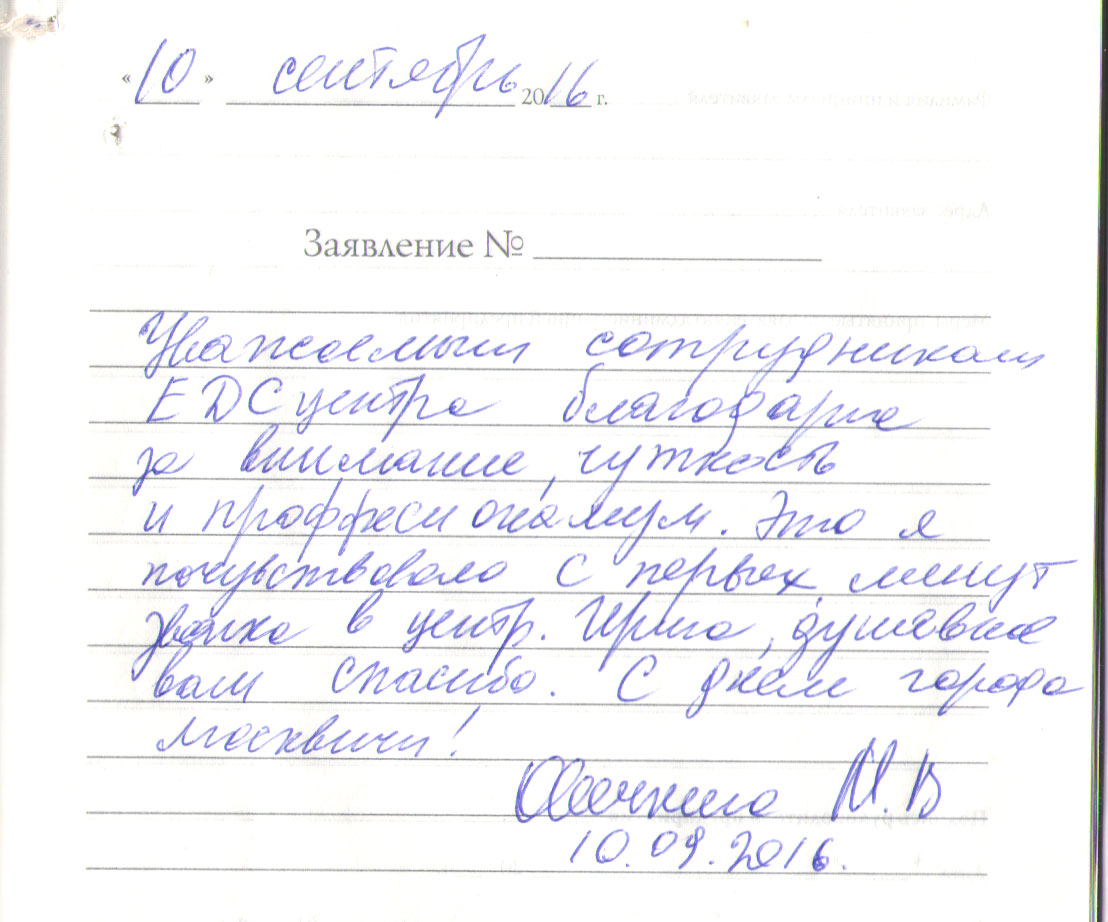 «10» сентябрь 2016 г.
Заявление №
Уважаемыи сотрудникам
ЕДС центра благодарна
за внимание, чуткость
и проффесионализм. Это я
почувствовала с первых минут
звонка в центр. Ирина, душевное
вам спасибо. С днем города
москвичи!
М.В
10.09.2016.